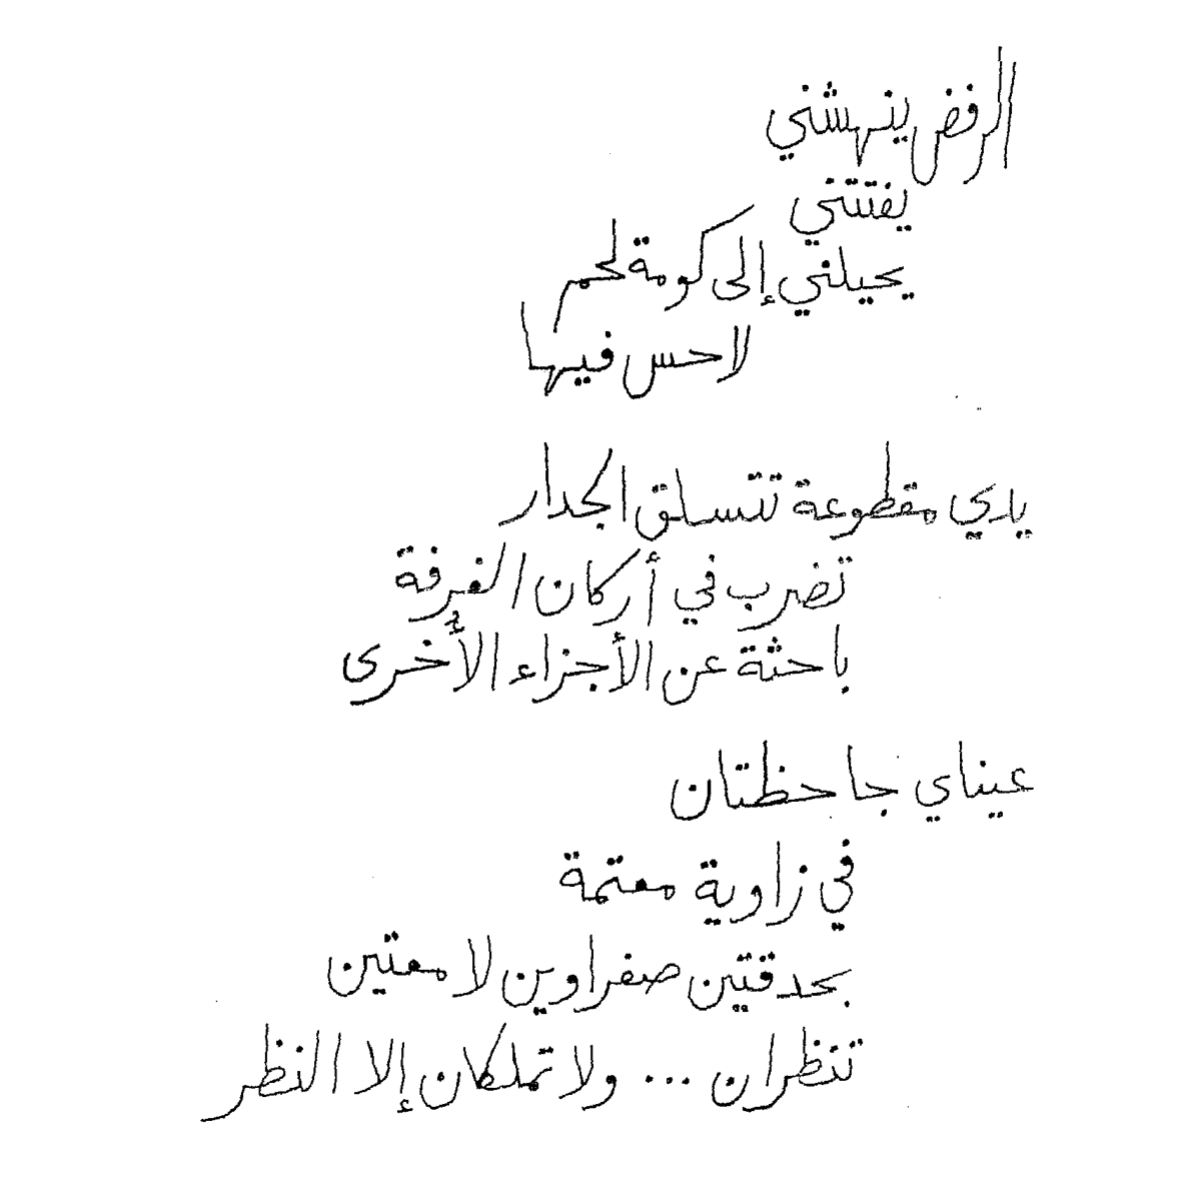 الرفض ينهشني
يفتتني
يحيلني إلى كومة لحم
لا حس فيها
يدي مقطوعة تتسلق الجدار
تضرب في أركان الغرفة
باحثة عن الأجزاء الأخرى
عيناي جاحظتان
في زاوية معتمة
بحدقتين صفراوين لامعتين
تنظران ... ولا تملكان إلا النظر